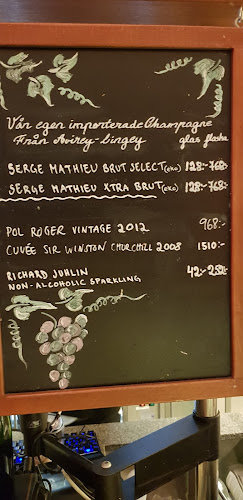 Vår egen importerade Champagne
Från Avirey-Lingey glas flaska
SERGE MATHIEU BRUT SELECT (eko) 128:- 768:-
SERGE MATHIEU XTRA BRUT (eko) 128:- 768:-
POL ROGER VINTAGE 2012 968:-
CUVÉE SIR WINSTON CHURCHILL 2008 1510:-
RICHARD JUHLIN 42:- 252:-
NON-ALCOHOLIC SPARKLING